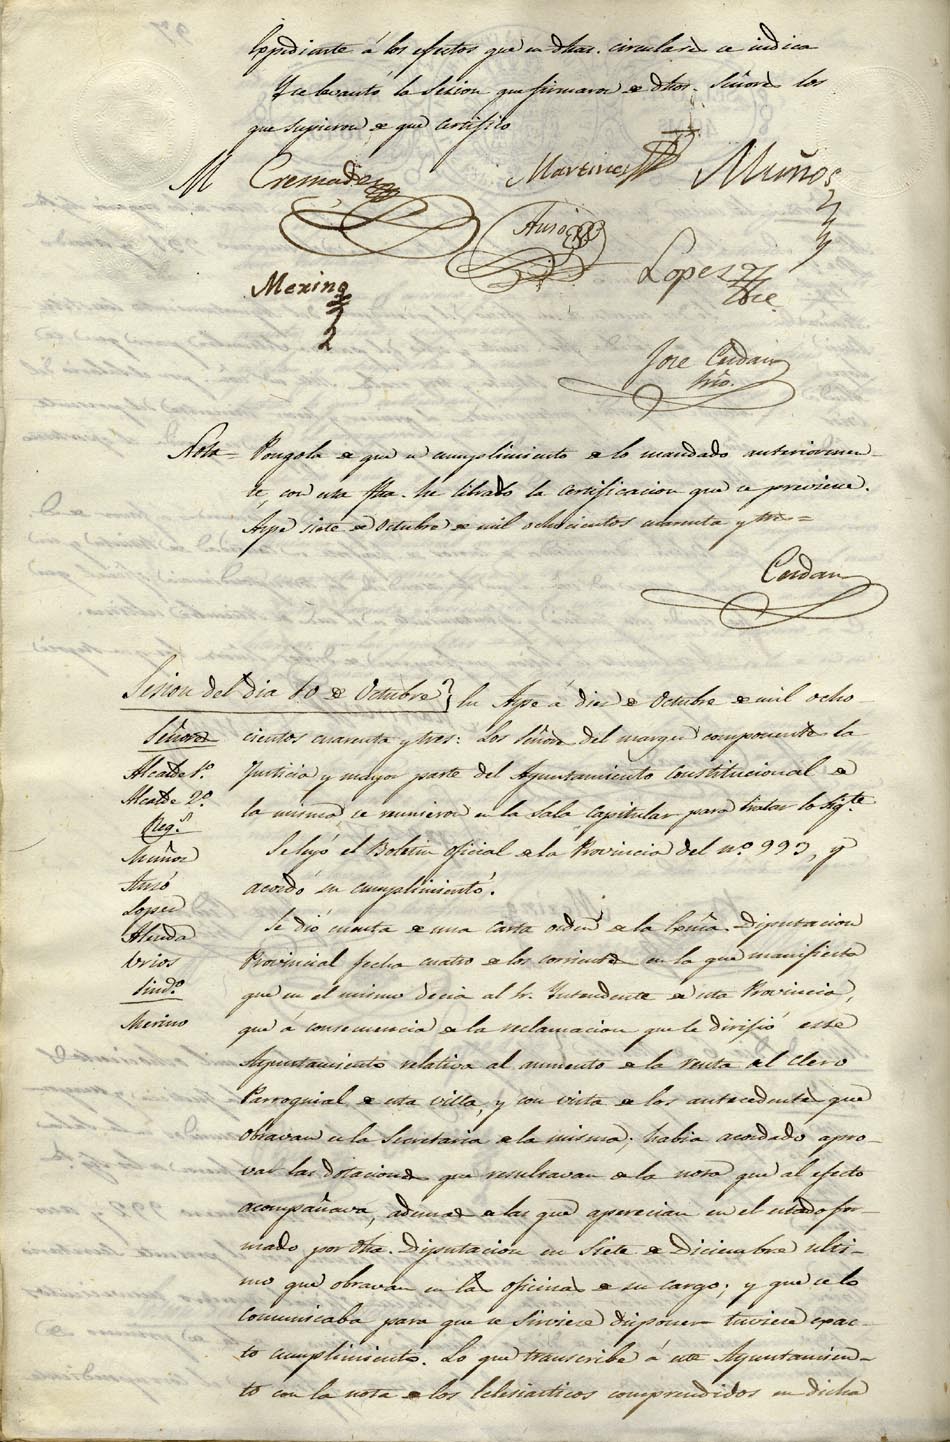 Expediente á los efectos que en dhas. circulares se indica
Y se levantó la Sesion que firmaron de dhos. Señores los
que supieron de que certifico
M Cremades Martinez Muños
Ausó
Lopez
Merino
Jose Cerdan
Srio.
Nota = Pongola de que en cumplimiento de lo mandado anteriormen-
te, con esta fha. he librado la certificacion que se previene.
Aspe siete de Octubre de mil ochocientos cuarenta y tres =
Cerdan
Sesion del dia 10 de Octubre
En Aspe á dies de Octubre de mil ocho-
Señores
cientos cuarenta y tres: Los Señores del margen componentes la
Alcalde 1º.
Justicia y mayor parte del Ayuntamiento Constitucional de
Alcalde 2º.
la misma se reunieron en la Sala Capitular para tratar lo sigte.
Regs.
Muñoz
Se leyó el Boletin oficial de la Provincia del nº. 993, y
Ausó
acordó su cumplimiento.
Lopez
Se dió cuenta de una carta orden de la Exma. Diputacion
Almeda
Provincial fecha cuatro de los corrientes en la que manifiesta
Urios
que en el mismo decia al Sr. Yntendente de esta Provincia,
Sindº.
que á consecuencia de la reclamacion que le dirifió este
Merino
Ayuntamiento relativa al aumento de la renta del Clero
Parroquial de esta villa, y con vista de los antecedentes que
obravan en la Secretaria de la misma; habia acordado apro-
var las dotaciones que resultavan de la nota que al efecto
acompañava, ademas de las que aparecian en el estado for-
mado por dha. Diputacion en Siete de Diciembre ulti-
mo que obravan en las oficinas de su cargo; y que se lo
comunicaba para que se sirviese disponer tuviese exac-
to cumplimiento. Lo que transcribe á este Ayuntamien-
to con la nota de los Eclesiasticos comprendidos en dicha